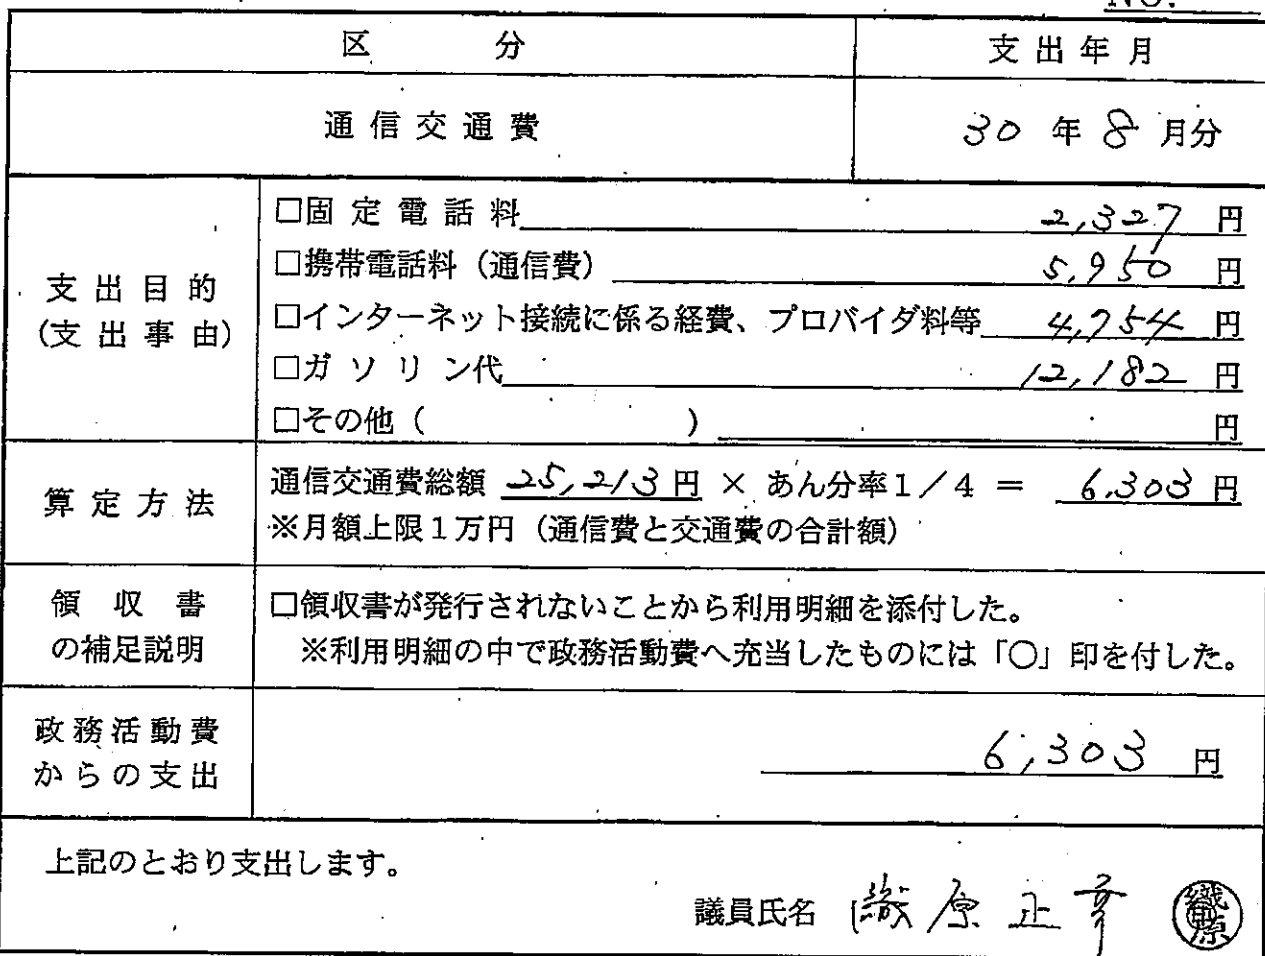 NO.
区 分 支出年月
通信交通費 30 年 8 月分
支出目的
(支出事由)
□固定電話料 2,327 円
□携帯電話料（通信費） 5,950 円
□インターネット接続に係る経費、プロバイダ料等 4,754 円
□ガソリン代 12,182 円
□その他（ ） 円
算定方法
通信交通費総額 25,213円 × あん分率1／4 = 6,303 円
※月額上限1万円（通信費と交通費の合計額）
領収書
の補足説明
□領収書が発行されないことから利用明細を添付した。
※利用明細の中で政務活動費へ充当したものには「○」印を付した。
政務活動費
からの支出
6,303 円
上記のとおり支出します。
議員氏名 織原正幸 織原